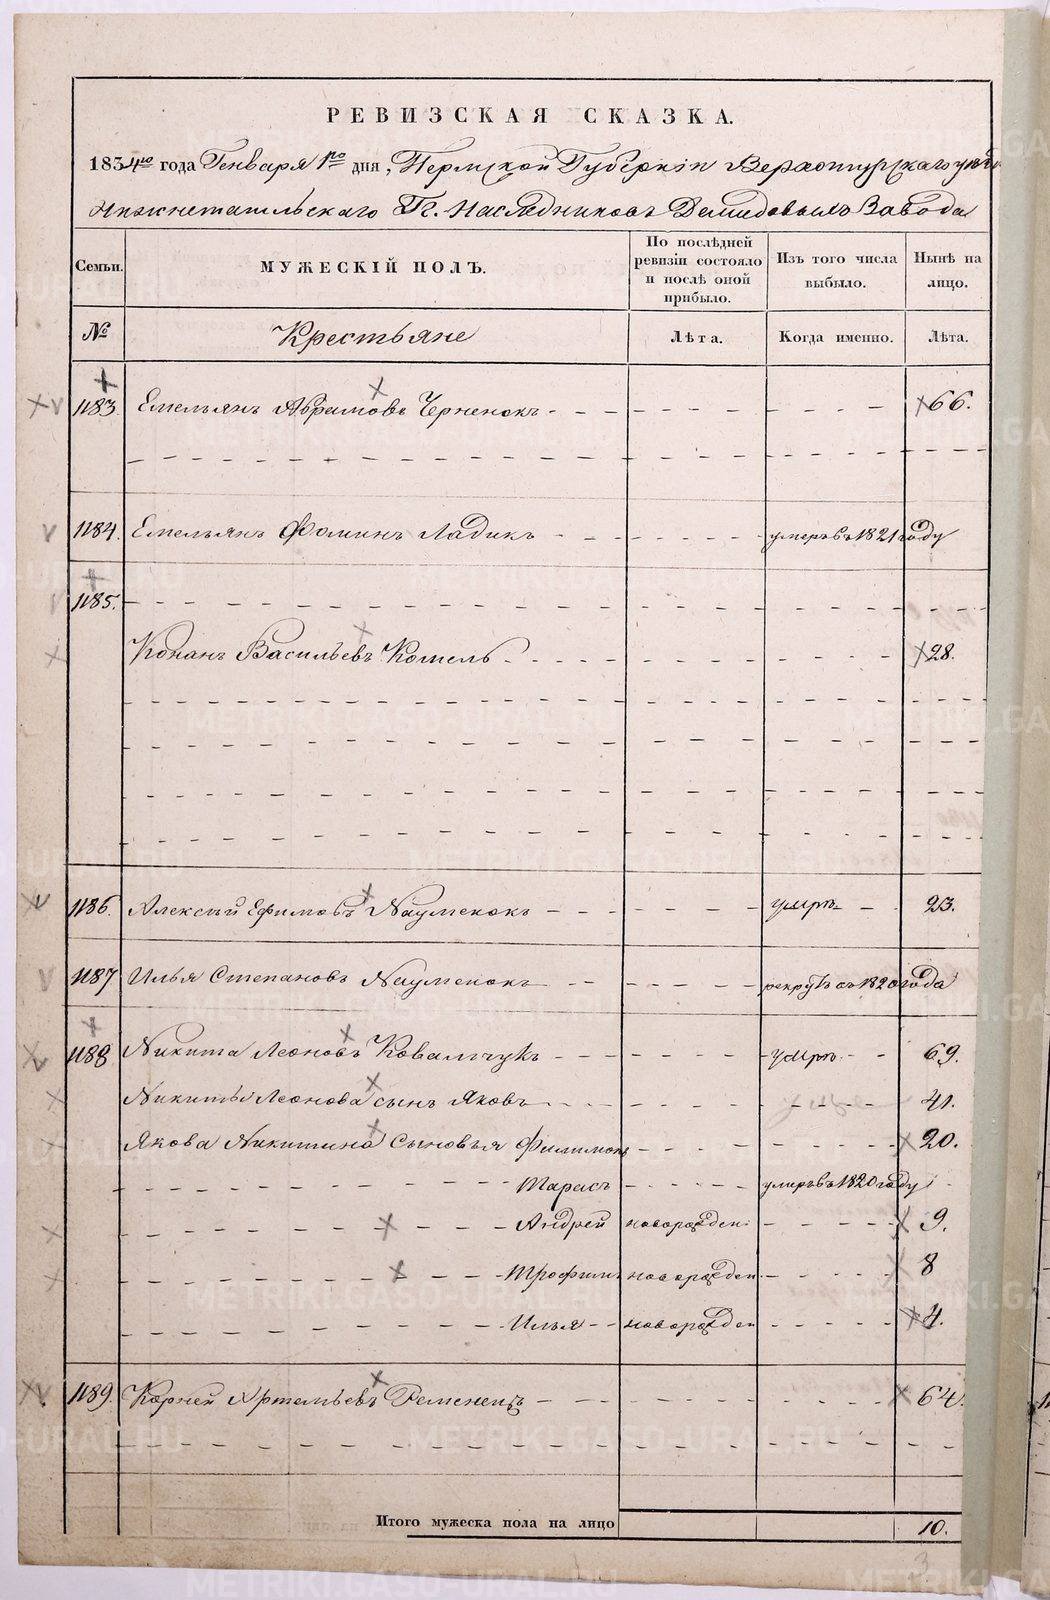 РЕВИЗСКАЯ СКАЗКА.
1834го года Генваря 1го дня, Пермской Губерніи Верхотурскаго уѣзда
Нижнетагильскаго Гг. Наслѣдниковъ Демидовыхъ Завода
Семьи.
МУЖЕСКІЙ ПОЛЪ.
По послѣдней ревизіи состояло и послѣ оной прибыло.
Изъ того числа выбыло.
Нынѣ на лицо.
№
Крестьяне
Лѣта.
Когда именно.
Лѣта.
1183. Емельянъ Абрамовъ Черненокъ 66.
1184. Емельянъ Фоминъ Ладикъ умеръ въ 1821 году
1185.
Кононъ Васильевъ Котель 28.
1186. Алексѣй Ефимовъ Науменокъ умръ 23.
1187 Илья Степановъ Науменокъ рекрутъ съ 1820 года
1188 Никита Леоновъ Ковальчукъ умръ 69.
Никиты Леонова сынъ Яковъ 41.
Якова Никитина Сыновья Филимонъ 20.
Тарасъ умеръ въ 1820 году
Андрей новорожден 9.
Трофимъ новорожден 8
Илья новорожден 4.
1189. Корней Артемьевъ Ременецъ 64.
Итого мужеска пола на лицо 10.
3
METRIKI.GASO-URAL.RU